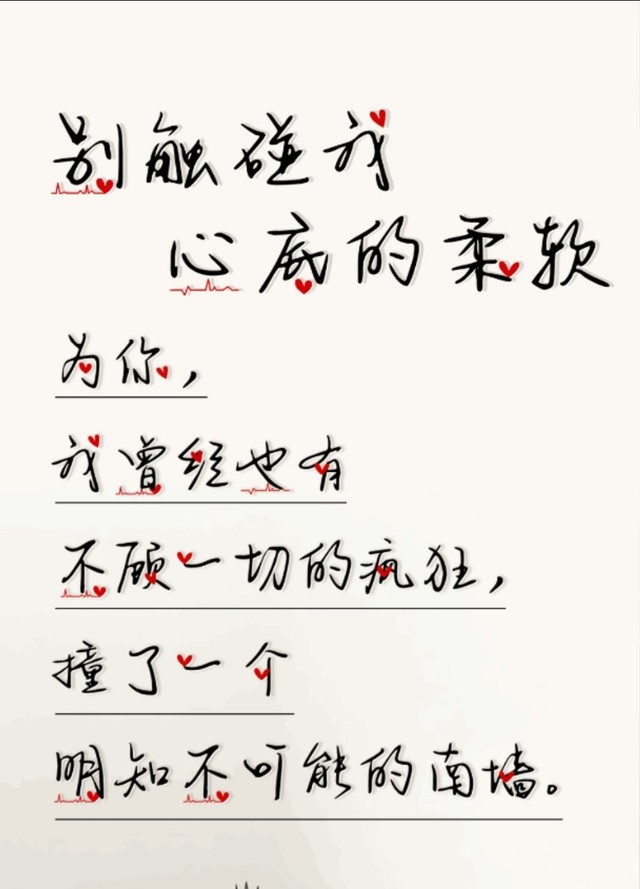 别触碰我
心底的柔软
为你，
我曾经也有
不顾一切的疯狂，
撞了一个
明知不可能的南墙。